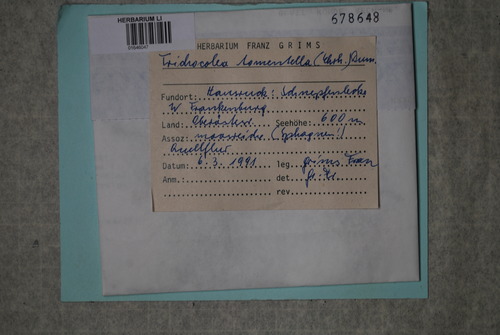 HERBARIUM LI
678648
HERBARIUM FRANZ GRIMS
Tridrocolea tomentella (Ehrh.) Dum.
Fundort: Hausruck: Schnepfenlucke
W Frankenburg
Land: Oberösterr. Seehöhe: 600 m
Assoz: moosreiche (Sphagnum!)
Quellflur
Datum: 6.3.1991 leg. Grims Franz
Anm.: det.
rev.